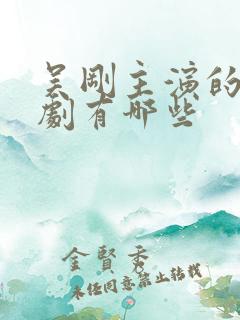 吴剛主演的
劇有哪些
金賢秀
未经同意禁止转载